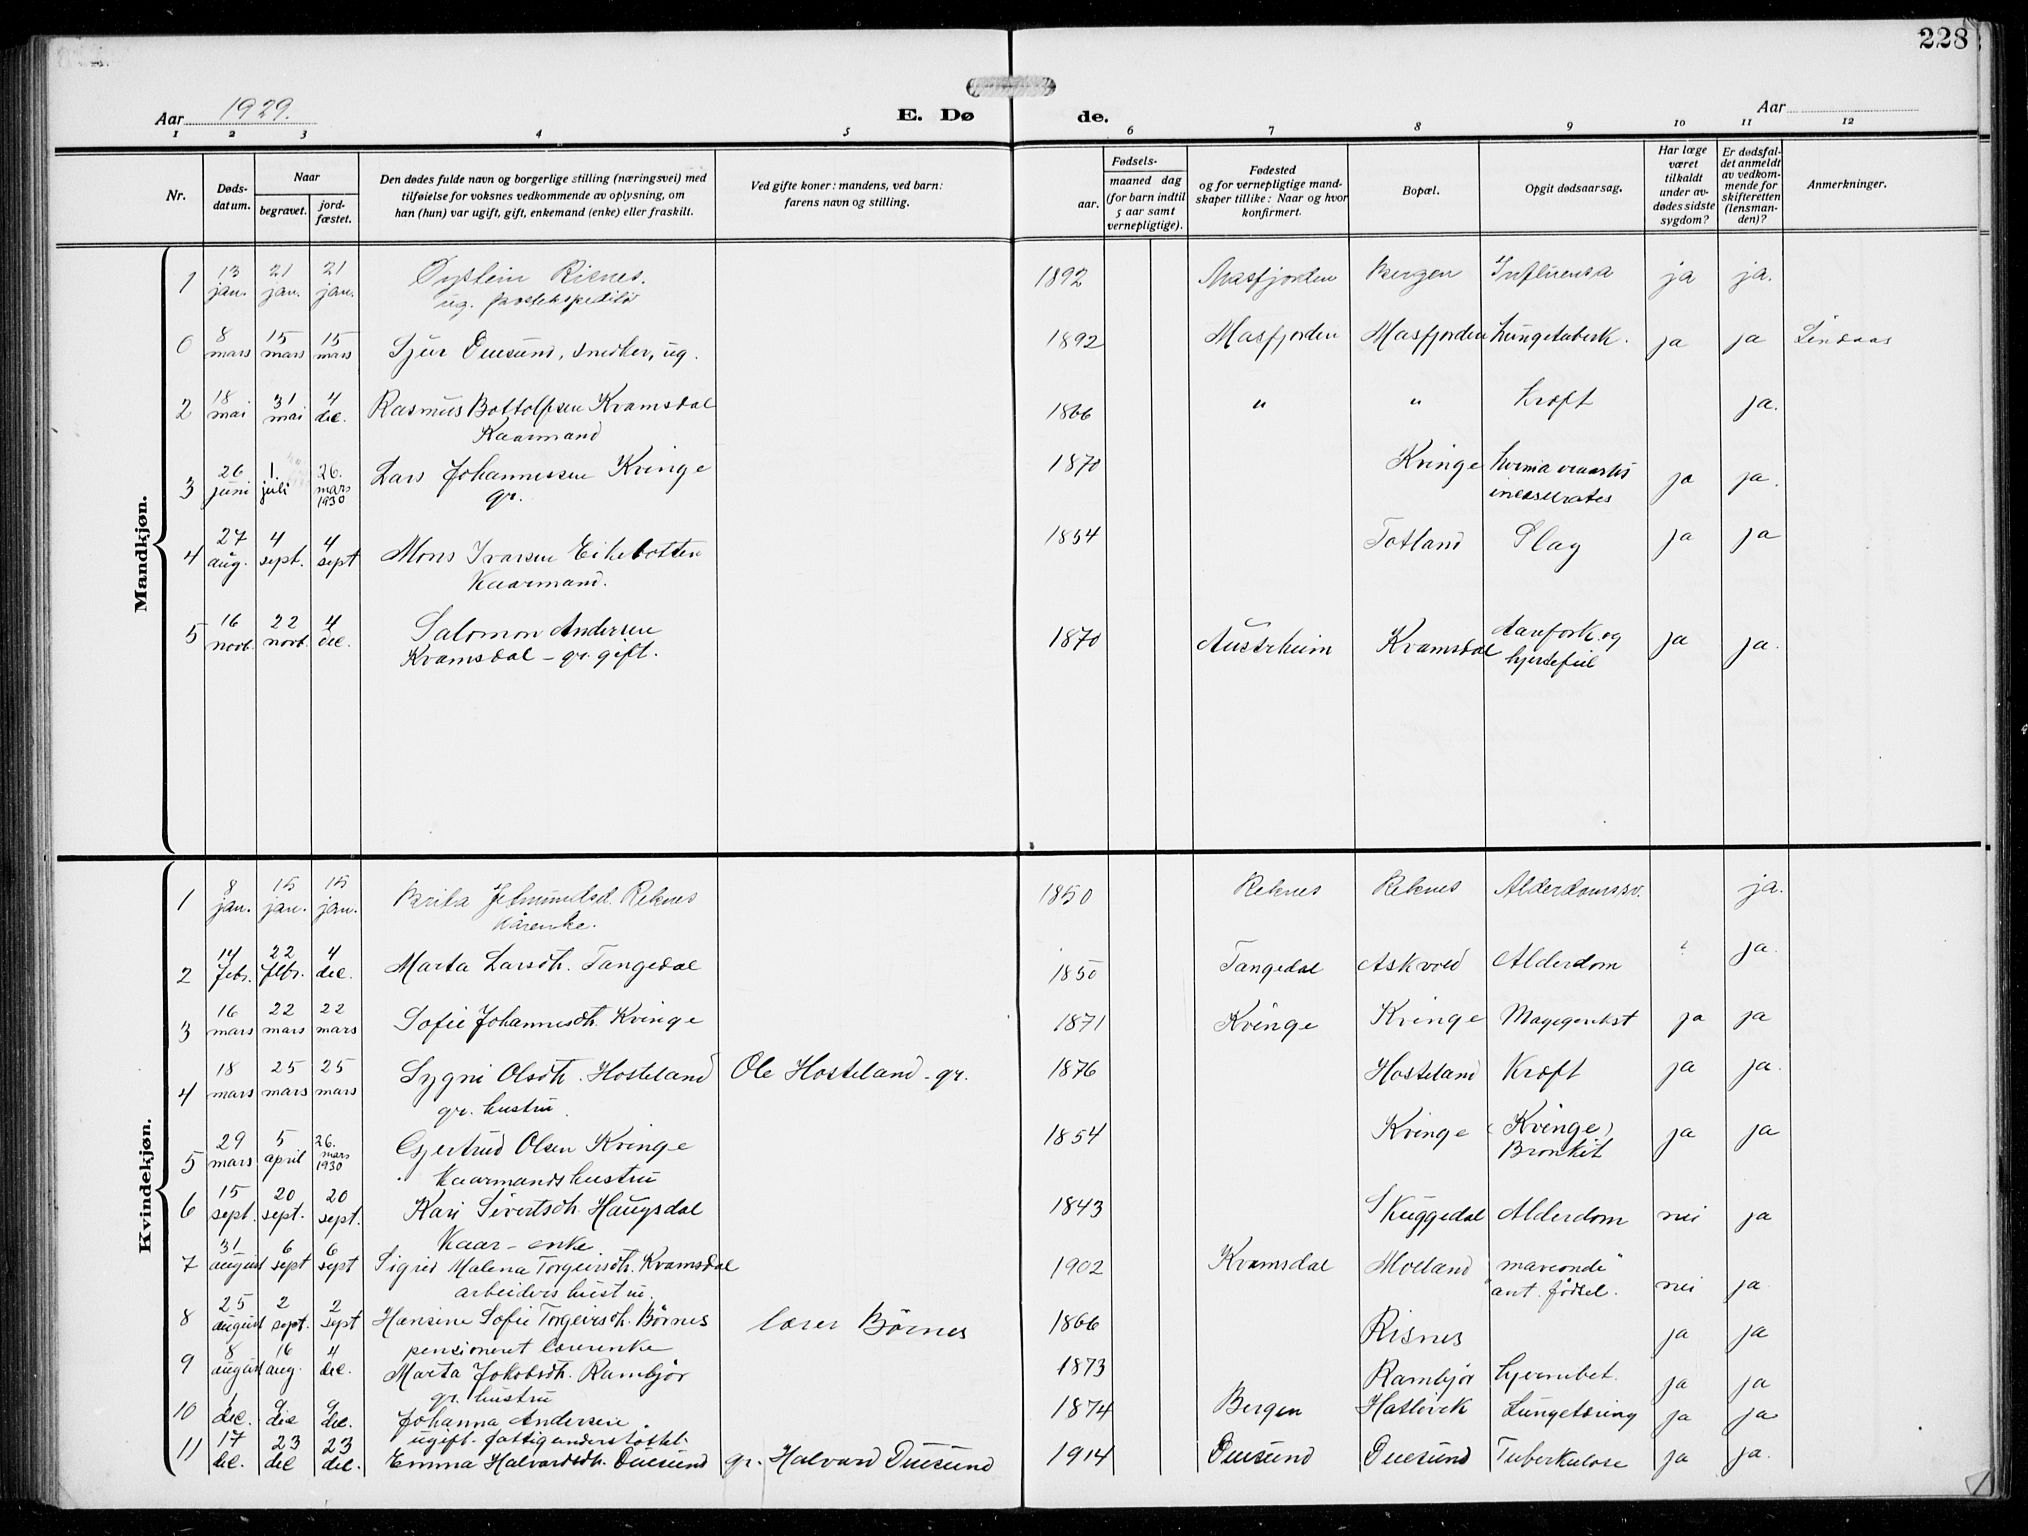 228
Aar 1929.
E. Dø de.
Aar
1 2 3 4 5 6 7 8 9 10 11 12
Nr.
Døds-
datum.
Naar
begravet.
jord-
fæstet.
Den dødes fulde navn og borgerlige stilling (næringsvei) med
tilføielse for voksnes vedkommende av oplysning, om
han (hun) var ugift, gift, enkemand (enke) eller fraskilt.
Ved gifte koner: mandens, ved barn:
farens navn og stilling.
Fødsels-
aar.
maaned dag
(for barn indtil
5 aar samt
vernepligtige).
Fødested
og for vernepligtige mand-
skaper tillike: Naar og hvor
konfirmert.
Bopæl.
Opgit dødsaarsag.
Har læge
været
tilkaldt
under av-
dødes sidste
sygdom?
Er dødsfal-
det anmeldt
av vedkom-
mende for
skifteretten
(lensman-
den)?
Anmerkninger.
Mandkjøn.
1 13 jan. 21 jan. 21 jan. Øystein Risnes. 1892 Masfjorden Bergen Influensa ja ja.
ug. postekspeditør
0 8 mars 15 mars 15 mars Sjur Duesund, snedker, ug. 1892 Masfjorden Masfjorden Lungetuberk. ja ja Lindaas
2 18 mai 31 mai 4 dec. Rasmus Bottolfsen Kramsdal 1866 " " Kræft ja.
Kaarmand
3 26 juni 1. juli 26. mars 1930 Lars Johannessen Kvinge 1870 Kvinge ja ja.
gr.
4 27 aug. 4 sept. 4 sept Mons Ivarsen Eikebotten 1854 Totland Slag ja ja
Kaarmand.
5 16 novb. 22 novb. 4 dec. Salomon Andersen 1870 Austrheim Kramsdal Aarefork. og ja ja.
Kramsdal - gr. gift. hjertefeil
Kvindekjøn.
1 8 jan. 15 jan. 15 jan. Brita Jetmundsd. Reknes 1850 Reknes Reknes Alderdomssv. ja.
Kårenke.
2 14 febr. 22 febr. 4 dec. Marta Larsdtr. Tangedal 1850 Tangedal Askvold Alderdom ja.
3 16 mars 22 mars 22 mars Sofie Johannesdtr. Kvinge 1871 Kvinge Kvinge ja ja
4 18 mars 25 mars 25 mars Sygni Olsdtr. Hosteland Ole Hosteland - gr. 1876 Hosteland Kræft ja ja.
gr. hustru.
5 29 mars 5 april 26. mars 1930 Gjertrud Olsen Kvinge 1854 Kvinge (Kvinge) ja ja
Kaarmandshustru Bronkit
6 15 sept. 20 sept. 20 sept. Kari Sivertsdtr. Haugsdal 1843 Skuggedal Alderdom nei ja
Kaar-enke
7 31 august 6 sept 6 sept Sigrid Malena Torgeirsdtr. Kramsdal 1902 Kramsdal Moland nei ja
arbeiders hustru. ant. fødsel.
8 25 august 2 sept. 2 sept Hansine Sofie Torgeirsdtr. Børnes lærer Børnes 1866 Risnes ja ja
pensioneret lærerenke
9 8 august 16 aug. 4 dec. Marta Jakobsdtr. Rambjør 1873 Rambjør Hjernebet. ja ja
gr. hustru
10 1 dec. 9 dec 9 dec. Johanna Andersen. 1874 Bergen Hatlevik Lungetæring ja ja
ugift. fattigunderstøttet.
11 17 dec. 23 dec 23 dec. Emma Halvardsdtr. Duesund gr. Halvard Duesund 1914 Duesund Duesund Tuberkulose ja ja.